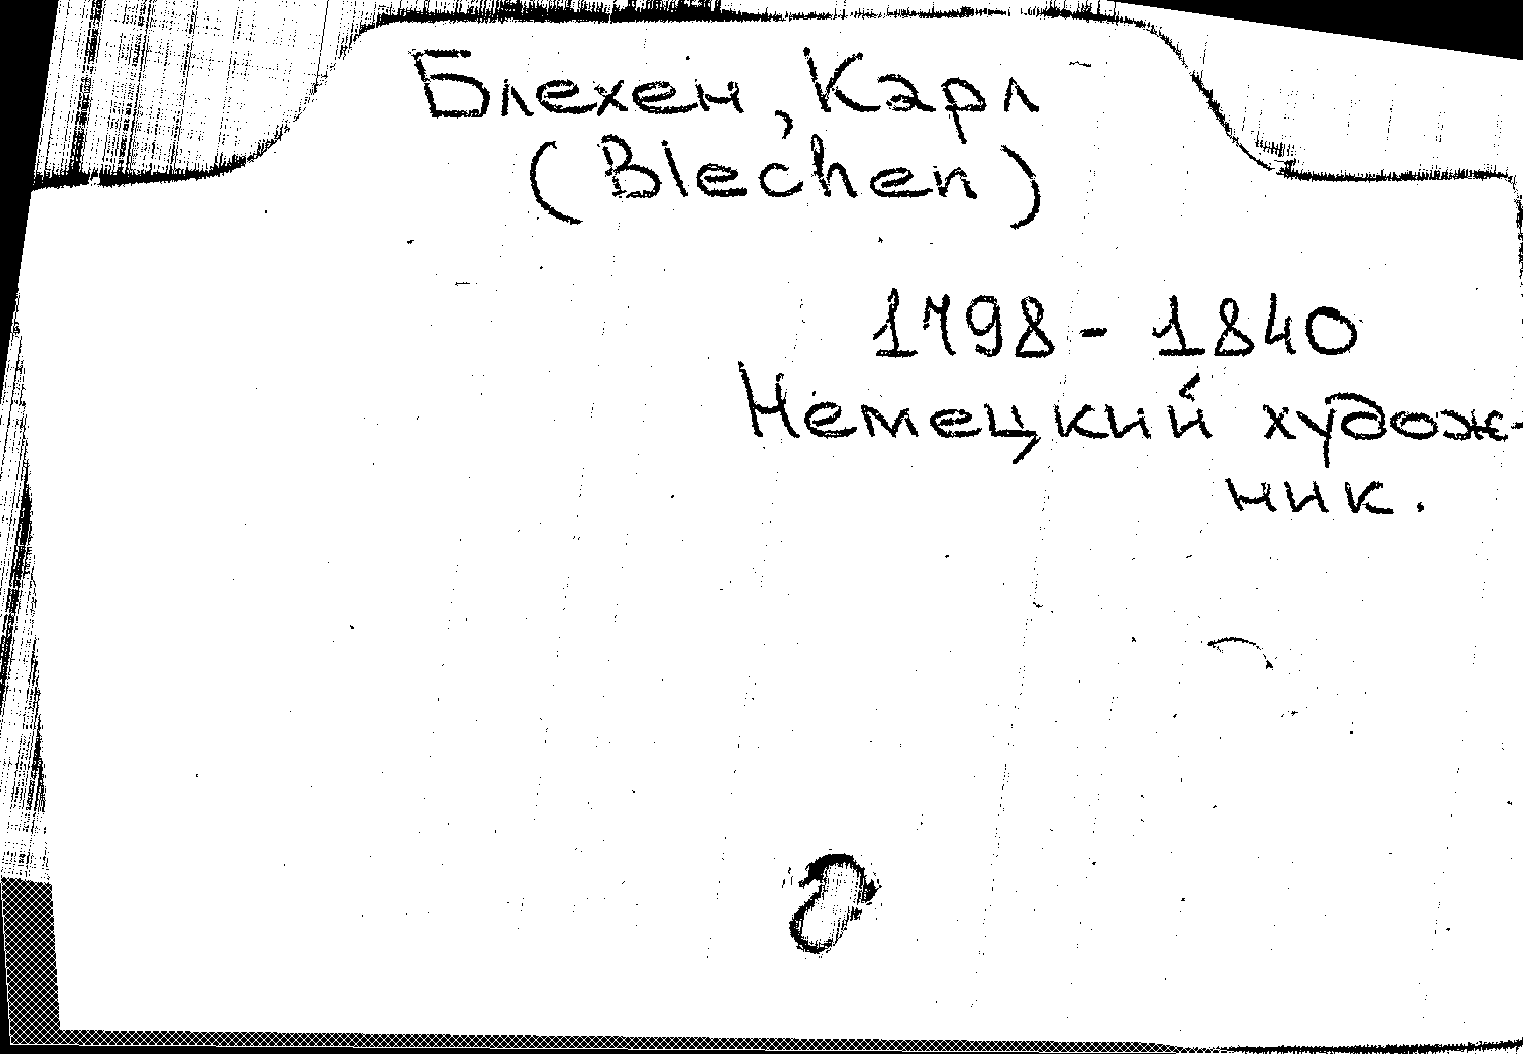 Блехен, Карл
(Blechen)
1798 - 1840
Немецкий худож-
ник.